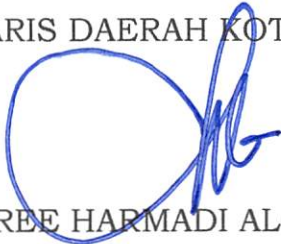 ARIS DAERAH KOT
REE HARMADI AL